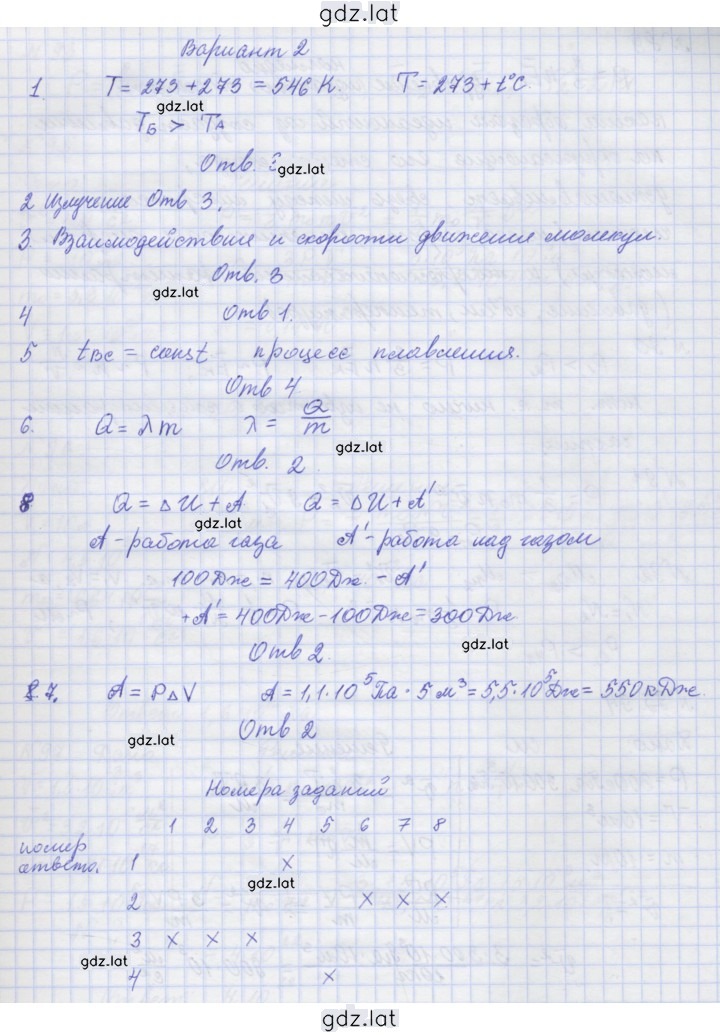 gdz.lat
Вариант 2
1. T = 273 + 273 = 546 К. T = 273 + t°C.
gdz.lat
Tб > TА
Отв. 3
gdz.lat
2 Излучение Отв 3.
3. Взаимодействие и скорости движения молекул.
Отв. 3
gdz.lat
4 Отв 1.
5 tBC = const процесс плавления.
Отв 4
6. Q = λm λ = Q/m
gdz.lat
Отв. 2
8 Q = ΔU + A Q = ΔU + A'
gdz.lat
A - работа газа A' - работа над газом
100Дж = 400Дж. - A'
+A' = 400Дж - 100Дж = 300Дж
gdz.lat
Отв 2.
7. A = PΔV A = 1,1·10⁵Па · 5м³ = 5,5·10⁵Дж = 550кДж.
gdz.lat
Отв 2
Номера заданий
1 2 3 4 5 6 7 8
номер
ответа. 1 x
gdz.lat
2 x x x
3 x x x
gdz.lat
4 x
gdz.lat